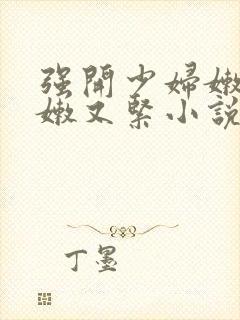 强開少婦嫩
嫩又緊小說
丁墨